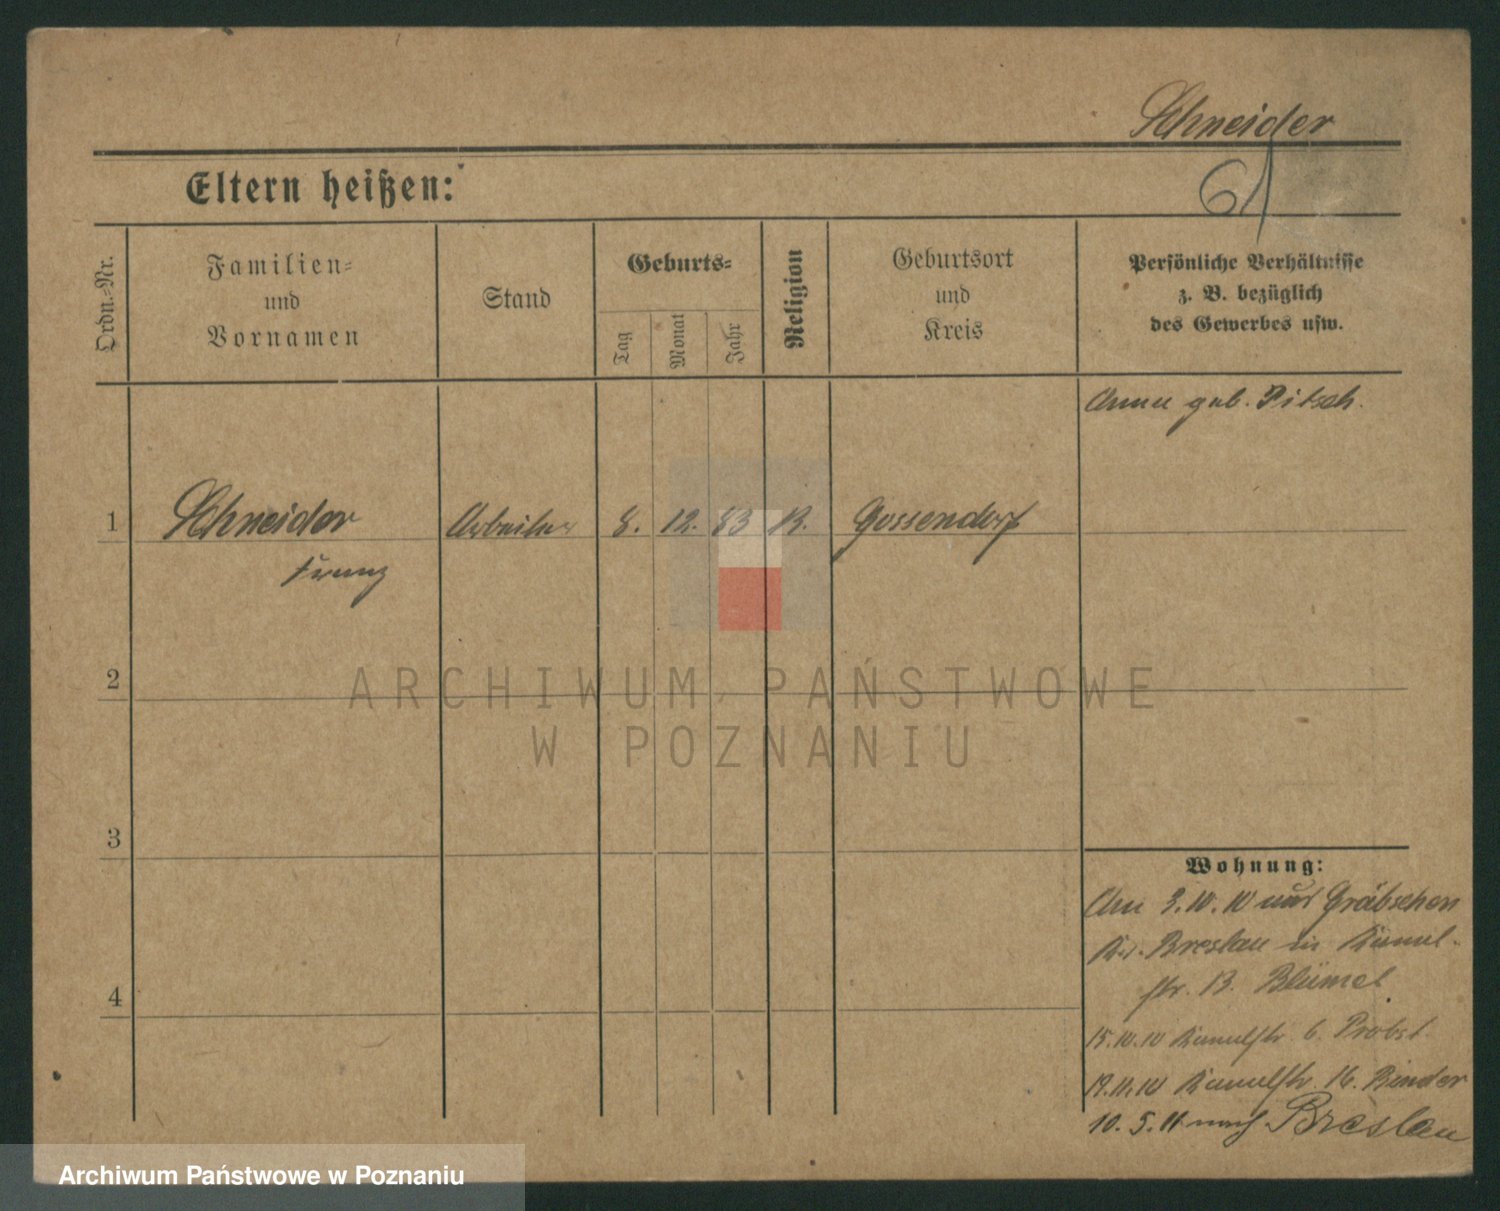 Schneider
61
Eltern heißen:
Ordn.-Nr.
Familien-
und
Vornamen
Stand
Geburts-
Tag
Monat
Jahr
Religion
Geburtsort
und
Kreis
Persönliche Verhältnisse
z. B. bezüglich
des Gewerbes usw.
Anna geb. Pitsch.
1 Schneider Arbeiter 8. 12. 83 R. Gossendorf
Franz
2
3
4
Wohnung:
Am 3.10.10 aus Gräbschen
Kr. Breslau in Kanal-
str. 13. Blümel
15.10.10 Kanalstr. 6. Probst
19.11.10 Kanalstr. 16. Binder
10. 5. 11 nach Breslau
ARCHIWUM PAŃSTWOWE
W POZNANIU
Archiwum Państwowe w Poznaniu